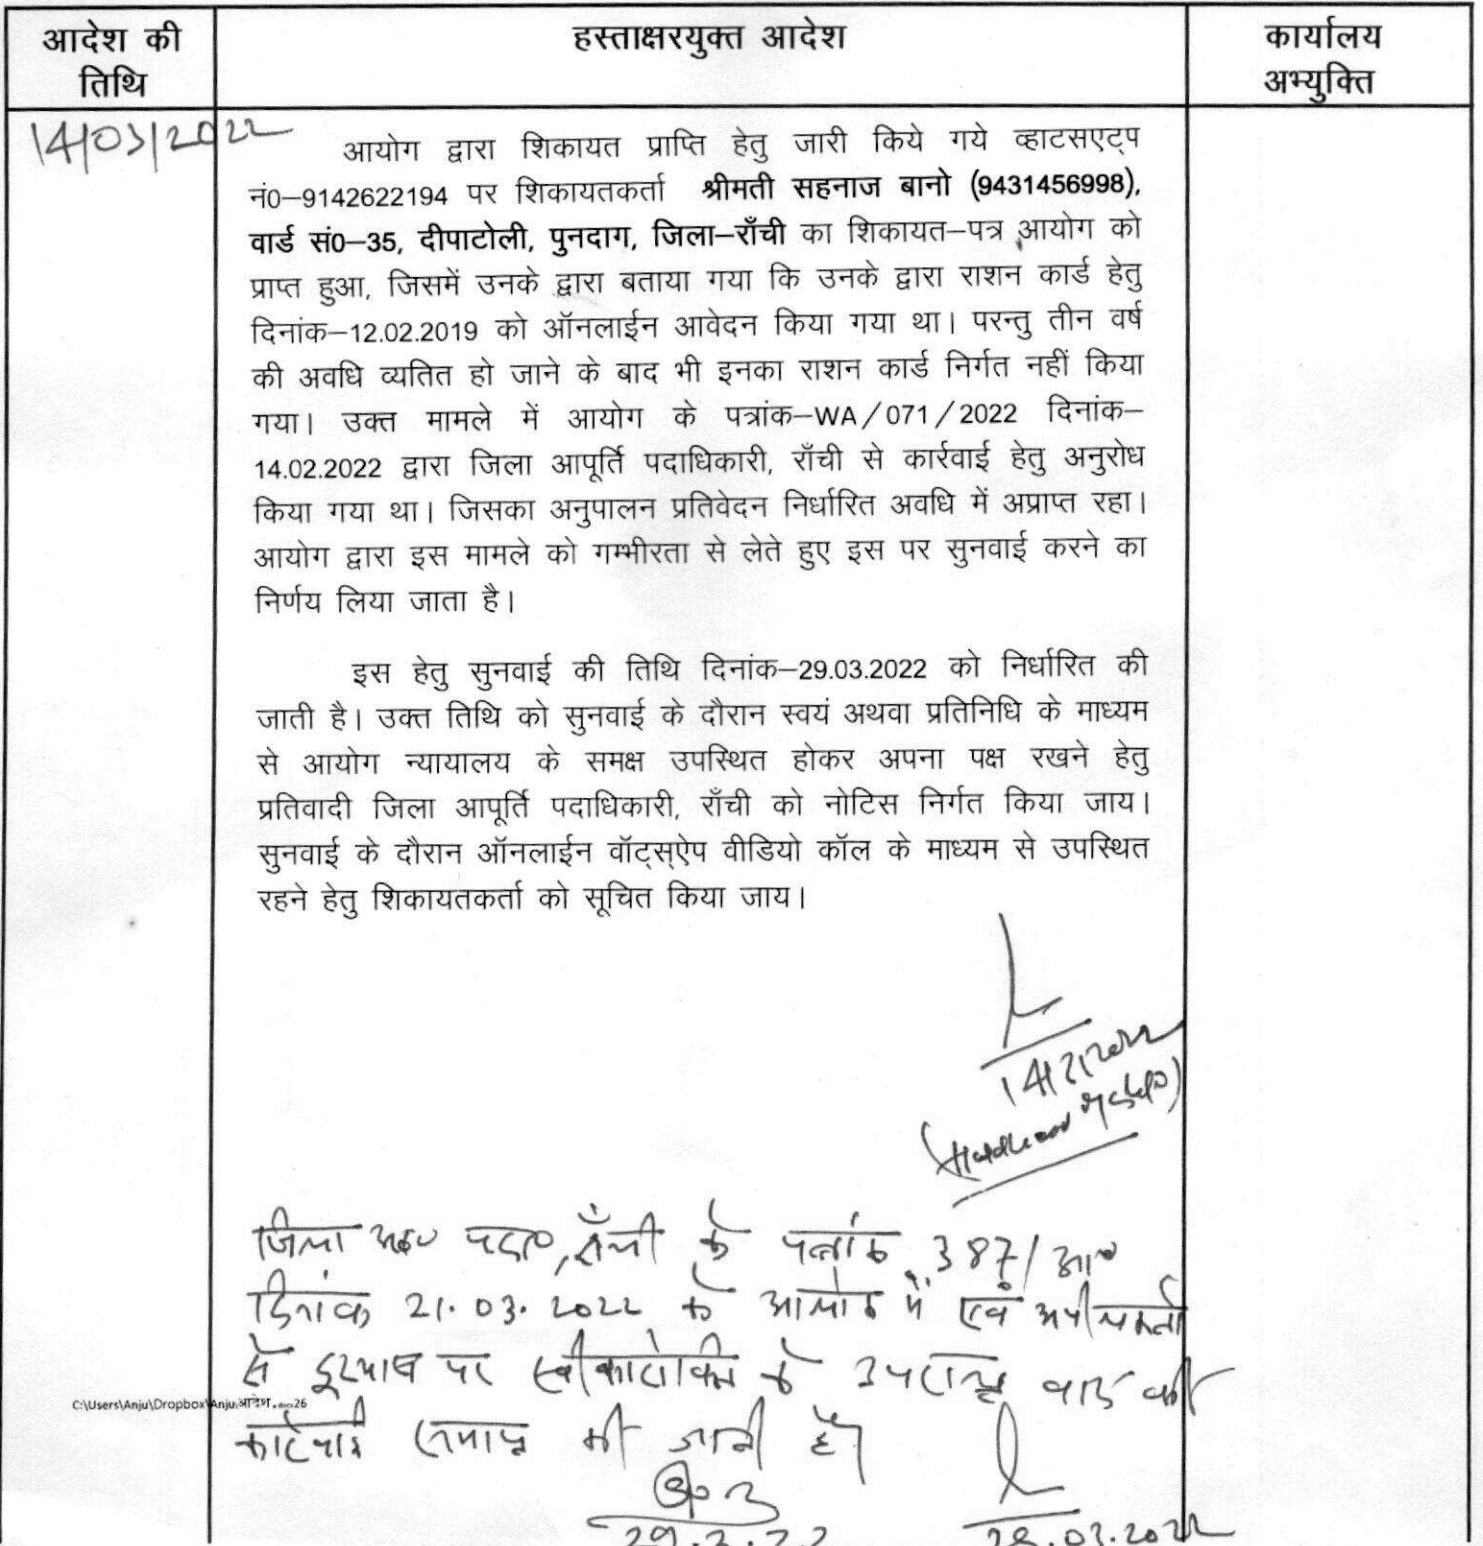 आदेश की
तिथि
हस्ताक्षरयुक्त आदेश
कार्यालय
अभ्युक्ति
14/03/2022
आयोग द्वारा शिकायत प्राप्ति हेतु जारी किये गये व्हाटसएट्प
नं0–9142622194 पर शिकायतकर्ता श्रीमती सहनाज बानो (9431456998),
वार्ड सं0–35, दीपाटोली, पुनदाग, जिला–राँची का शिकायत–पत्र आयोग को
प्राप्त हुआ, जिसमें उनके द्वारा बताया गया कि उनके द्वारा राशन कार्ड हेतु
दिनांक–12.02.2019 को ऑनलाईन आवेदन किया गया था। परन्तु तीन वर्ष
की अवधि व्यतित हो जाने के बाद भी इनका राशन कार्ड निर्गत नहीं किया
गया। उक्त मामले में आयोग के पत्रांक–WA/071/2022 दिनांक–
14.02.2022 द्वारा जिला आपूर्ति पदाधिकारी, राँची से कार्रवाई हेतु अनुरोध
किया गया था। जिसका अनुपालन प्रतिवेदन निर्धारित अवधि में अप्राप्त रहा।
आयोग द्वारा इस मामले को गम्भीरता से लेते हुए इस पर सुनवाई करने का
निर्णय लिया जाता है।
इस हेतु सुनवाई की तिथि दिनांक–29.03.2022 को निर्धारित की
जाती है। उक्त तिथि को सुनवाई के दौरान स्वयं अथवा प्रतिनिधि के माध्यम
से आयोग न्यायालय के समक्ष उपस्थित होकर अपना पक्ष रखने हेतु
प्रतिवादी जिला आपूर्ति पदाधिकारी, राँची को नोटिस निर्गत किया जाय।
सुनवाई के दौरान ऑनलाईन वॉट्स्ऐप वीडियो कॉल के माध्यम से उपस्थित
रहने हेतु शिकायतकर्ता को सूचित किया जाय।
जिला पदा०, राँची के पत्रांक 387/आ०
दिनांक 21.03.2022 के आलोक में एवं अपीलकर्ता
से दूरभाष पर स्वीकारोक्ति के उपरान्त वाद की
C:\Users\Anju\Dropbox\Anju\आदेश.docx26
कार्रवाई समाप्त की जाती है।
29.3.22